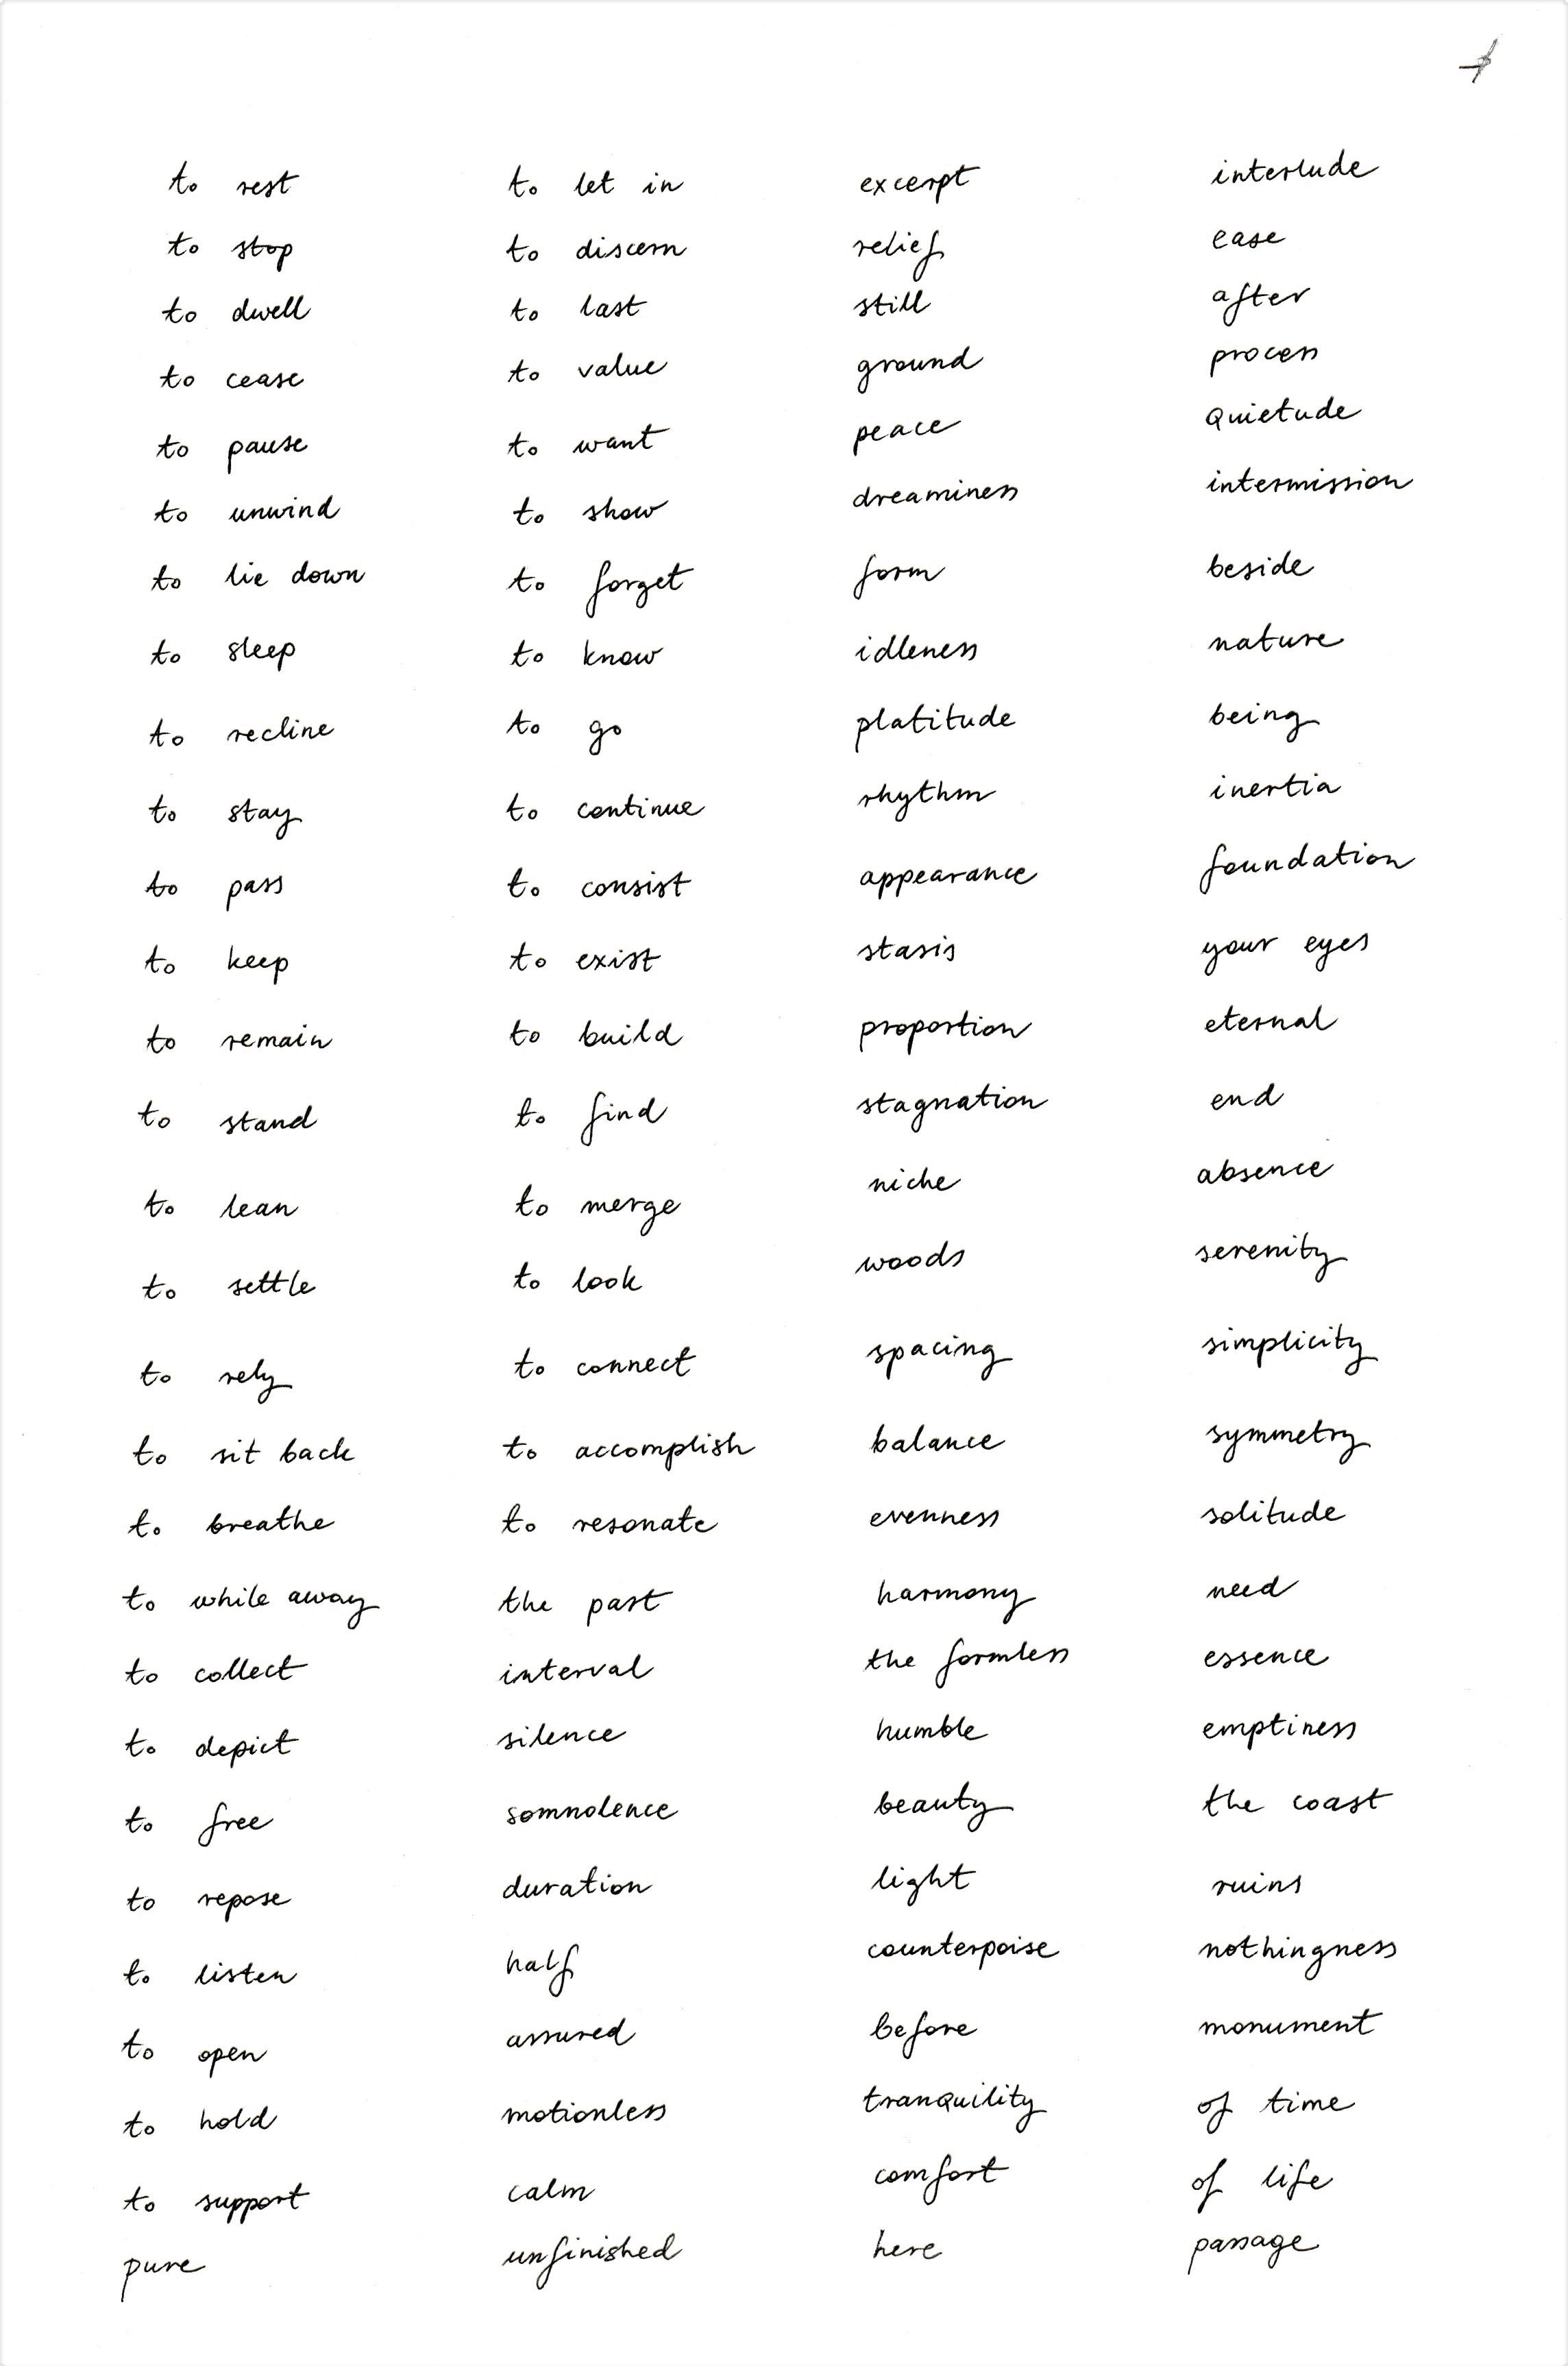 to rest
to stop
to dwell
to cease
to pause
to unwind
to lie down
to sleep
to recline
to stay
to pass
to keep
to remain
to stand
to lean
to settle
to rely
to sit back
to breathe
to while away
to collect
to depict
to free
to repose
to listen
to open
to hold
to support
pure
to let in
to discern
to last
to value
to want
to show
to forget
to know
to go
to continue
to consist
to exist
to build
to find
to merge
to look
to connect
to accomplish
to resonate
the past
interval
silence
somnolence
duration
half
assured
motionless
calm
unfinished
excerpt
relief
still
ground
peace
dreaminess
form
idleness
platitude
rhythm
appearance
stasis
proportion
stagnation
niche
woods
spacing
balance
evenness
harmony
the formless
humble
beauty
light
counterpoise
before
tranquility
comfort
here
interlude
ease
after
process
Quietude
intermission
beside
nature
being
inertia
foundation
your eyes
eternal
end
absence
serenity
simplicity
symmetry
solitude
need
essence
emptiness
the coast
ruins
nothingness
monument
of time
of life
passage